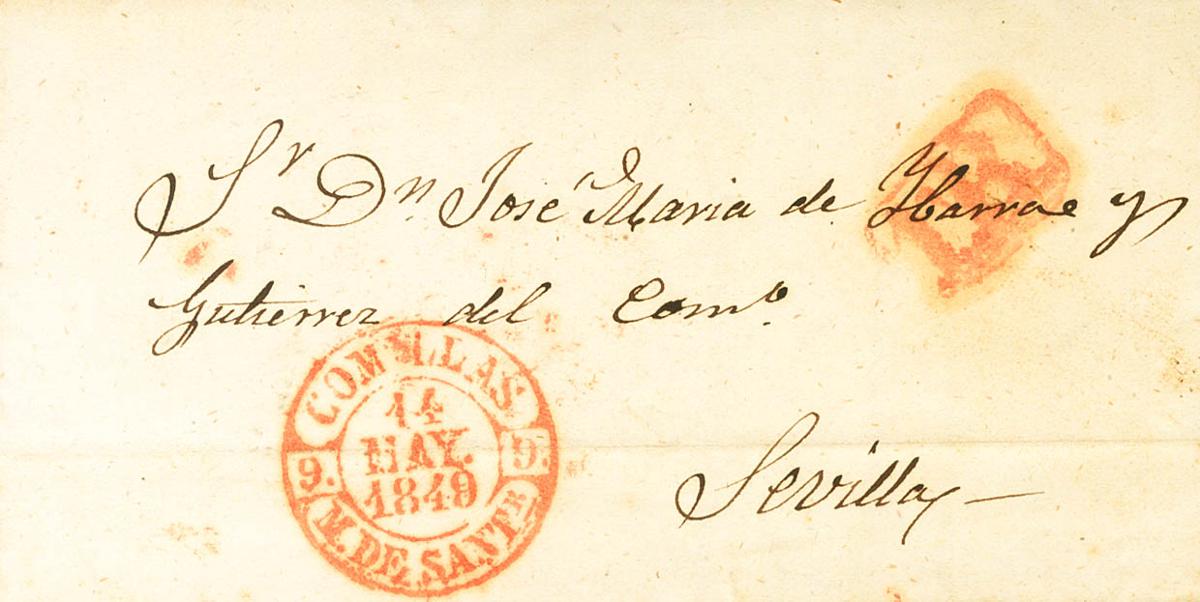 Sr Dn José Maria de Ybarra y
Gutierrez del Com.o
COMILLAS
14
MAY.
1849
9. 9.
M. DE SANTR
Sevilla